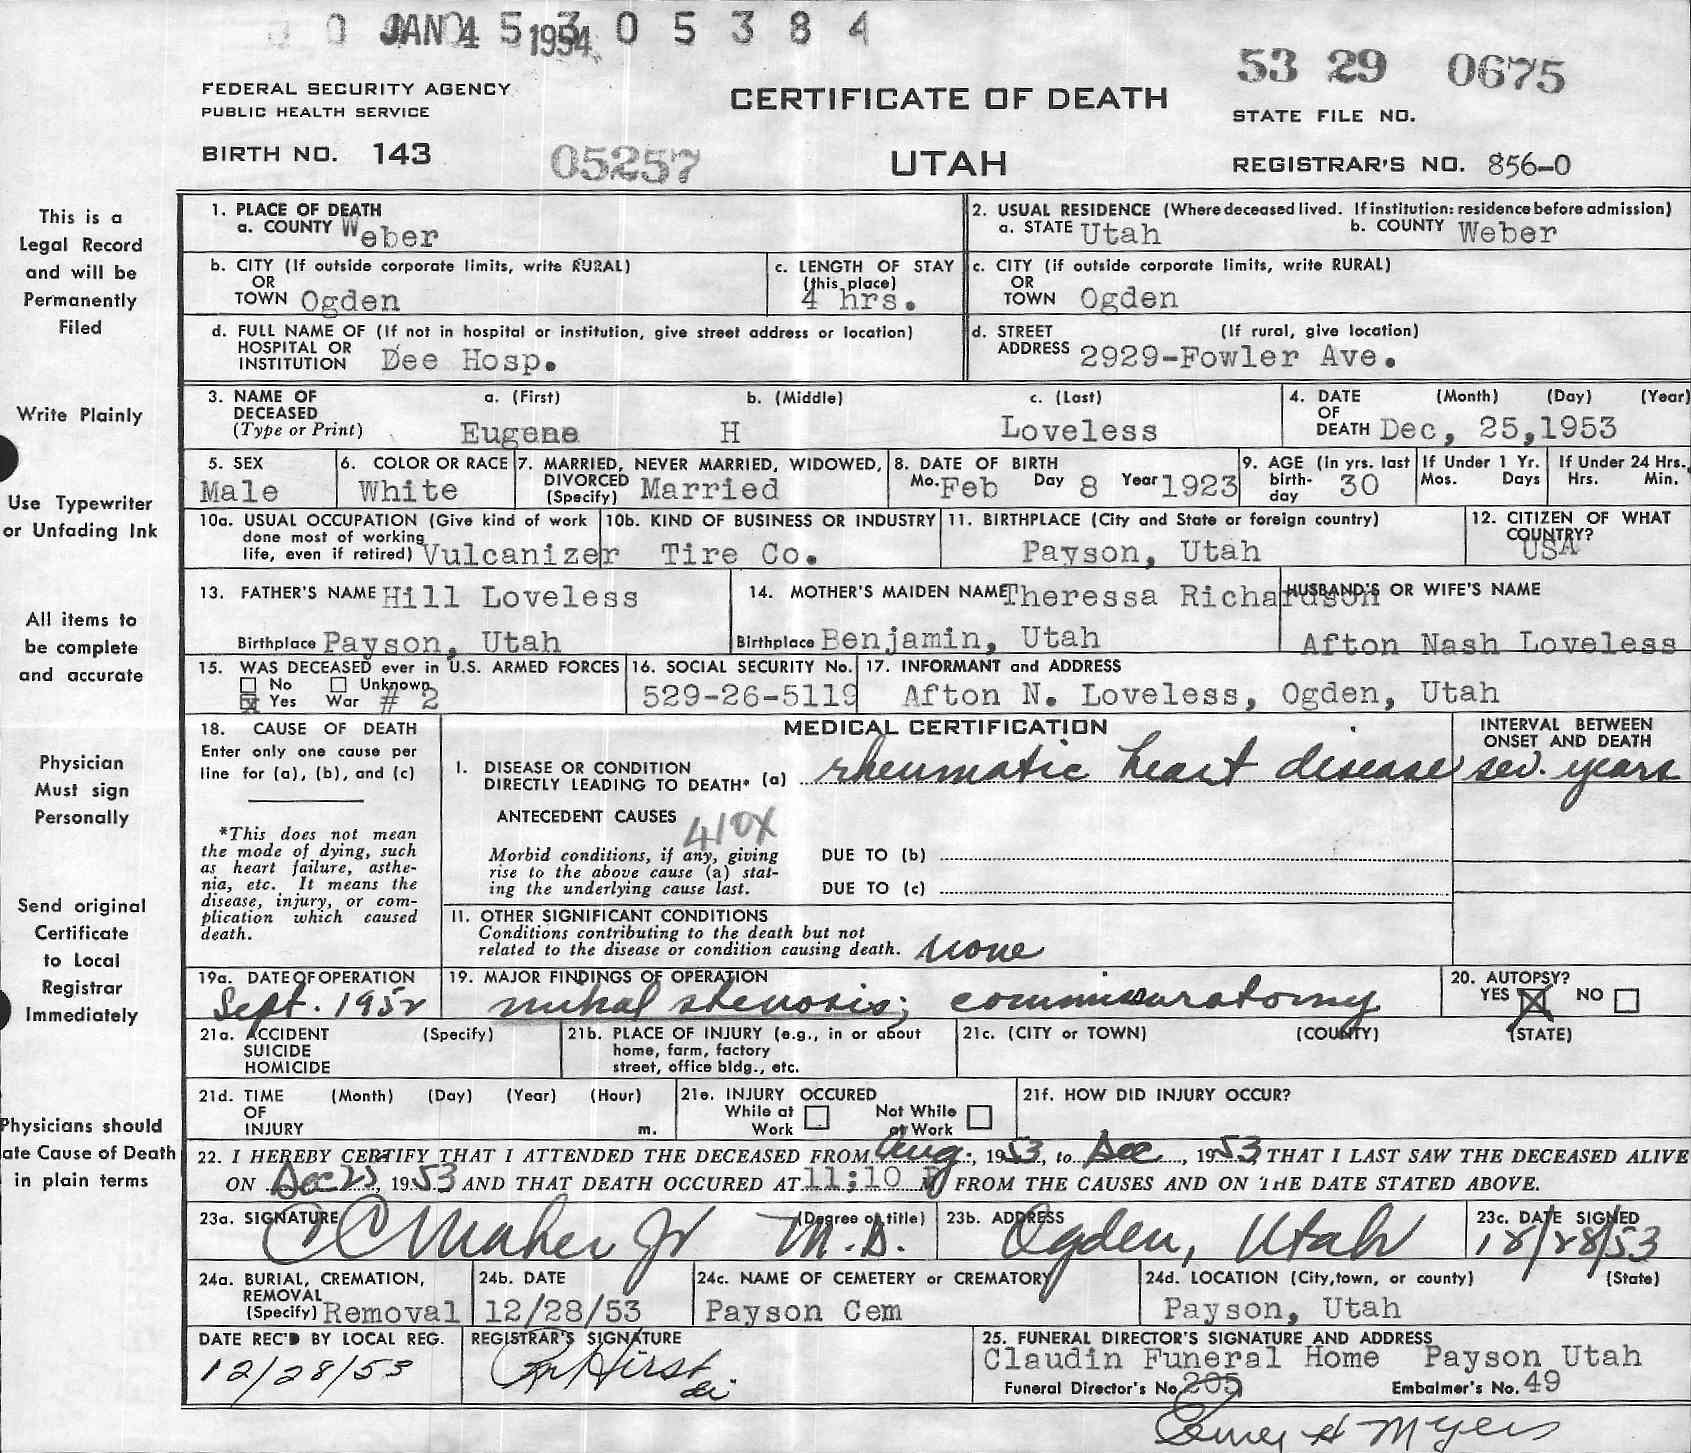 JAN 4 1954
5 3 0 5 3 8 4
53 29 0675
FEDERAL SECURITY AGENCY
PUBLIC HEALTH SERVICE
CERTIFICATE OF DEATH
STATE FILE NO.
BIRTH NO. 143
05257
UTAH
REGISTRAR'S NO. 856-0
This is a
Legal Record
and will be
Permanently
Filed
Write Plainly
Use Typewriter
or Unfading Ink
All items to
be complete
and accurate
Physician
Must sign
Personally
Send original
Certificate
to Local
Registrar
Immediately
Physicians should
ate Cause of Death
in plain terms
1. PLACE OF DEATH
a. COUNTY Weber
2. USUAL RESIDENCE (Where deceased lived. If institution: residence before admission)
a. STATE Utah b. COUNTY Weber
b. CITY (If outside corporate limits, write RURAL)
OR
TOWN Ogden
c. LENGTH OF STAY
(this place)
4 hrs.
c. CITY (if outside corporate limits, write RURAL)
OR
TOWN Ogden
d. FULL NAME OF (If not in hospital or institution, give street address or location)
HOSPITAL OR
INSTITUTION Dee Hosp.
d. STREET (If rural, give location)
ADDRESS 2929-Fowler Ave.
3. NAME OF a. (First) b. (Middle) c. (Last)
DECEASED
(Type or Print) Eugene H Loveless
4. DATE (Month) (Day) (Year)
OF
DEATH Dec, 25,1953
5. SEX
Male
6. COLOR OR RACE
White
7. MARRIED, NEVER MARRIED, WIDOWED,
DIVORCED
(Specify) Married
8. DATE OF BIRTH
Mo. Feb Day 8 Year 1923
9. AGE (in yrs. last
birth-
day 30
If Under 1 Yr.
Mos. Days
If Under 24 Hrs.
Hrs. Min.
10a. USUAL OCCUPATION (Give kind of work
done most of working
life, even if retired) Vulcanizer
10b. KIND OF BUSINESS OR INDUSTRY
Tire Co.
11. BIRTHPLACE (City and State or foreign country)
Payson, Utah
12. CITIZEN OF WHAT
COUNTRY?
USA
13. FATHER'S NAME Hill Loveless
Birthplace Payson, Utah
14. MOTHER'S MAIDEN NAME Theressa Richardson
Birthplace Benjamin, Utah
HUSBAND'S OR WIFE'S NAME
Afton Nash Loveless
15. WAS DECEASED ever in U.S. ARMED FORCES
No Unknown
Yes War # 2
16. SOCIAL SECURITY No.
529-26-5119
17. INFORMANT and ADDRESS
Afton N. Loveless, Ogden, Utah
18. CAUSE OF DEATH
Enter only one cause per
line for (a), (b), and (c)
*This does not mean
the mode of dying, such
as heart failure, asthe-
nia, etc. It means the
disease, injury, or com-
plication which caused
death.
MEDICAL CERTIFICATION
INTERVAL BETWEEN
ONSET AND DEATH
I. DISEASE OR CONDITION
DIRECTLY LEADING TO DEATH* (a) rheumatic heart disease sev. years
ANTECEDENT CAUSES 410X
Morbid conditions, if any, giving
rise to the above cause (a) stat-
ing the underlying cause last.
DUE TO (b)
DUE TO (c)
II. OTHER SIGNIFICANT CONDITIONS
Conditions contributing to the death but not
related to the disease or condition causing death. none
19a. DATE OF OPERATION
Sept. 1952
19. MAJOR FINDINGS OF OPERATION
mitral stenosis; commissuratomy
20. AUTOPSY?
YES NO
21a. ACCIDENT (Specify)
SUICIDE
HOMICIDE
21b. PLACE OF INJURY (e.g., in or about
home, farm, factory
street, office bldg., etc.
21c. (CITY or TOWN) (COUNTY) (STATE)
21d. TIME (Month) (Day) (Year) (Hour)
OF
INJURY m.
21e. INJURY OCCURED
While at Not While
Work at Work
21f. HOW DID INJURY OCCUR?
22. I HEREBY CERTIFY THAT I ATTENDED THE DECEASED FROM Aug., 1953, to Dec, 1953, THAT I LAST SAW THE DECEASED ALIVE
ON Dec 25, 1953 AND THAT DEATH OCCURED AT 11:10 P M FROM THE CAUSES AND ON THE DATE STATED ABOVE.
23a. SIGNATURE (Degree or title)
C C Maher Jr M.D.
23b. ADDRESS
Ogden, Utah
23c. DATE SIGNED
12/28/53
24a. BURIAL, CREMATION,
REMOVAL
(Specify) Removal
24b. DATE
12/28/53
24c. NAME OF CEMETERY or CREMATORY
Payson Cem
24d. LOCATION (City, town, or county) (State)
Payson, Utah
DATE REC'D BY LOCAL REG.
12/28/53
REGISTRAR'S SIGNATURE
Hirst
25. FUNERAL DIRECTOR'S SIGNATURE AND ADDRESS
Claudin Funeral Home Payson Utah
Funeral Director's No. 205 Embalmer's No. 49
H Myers